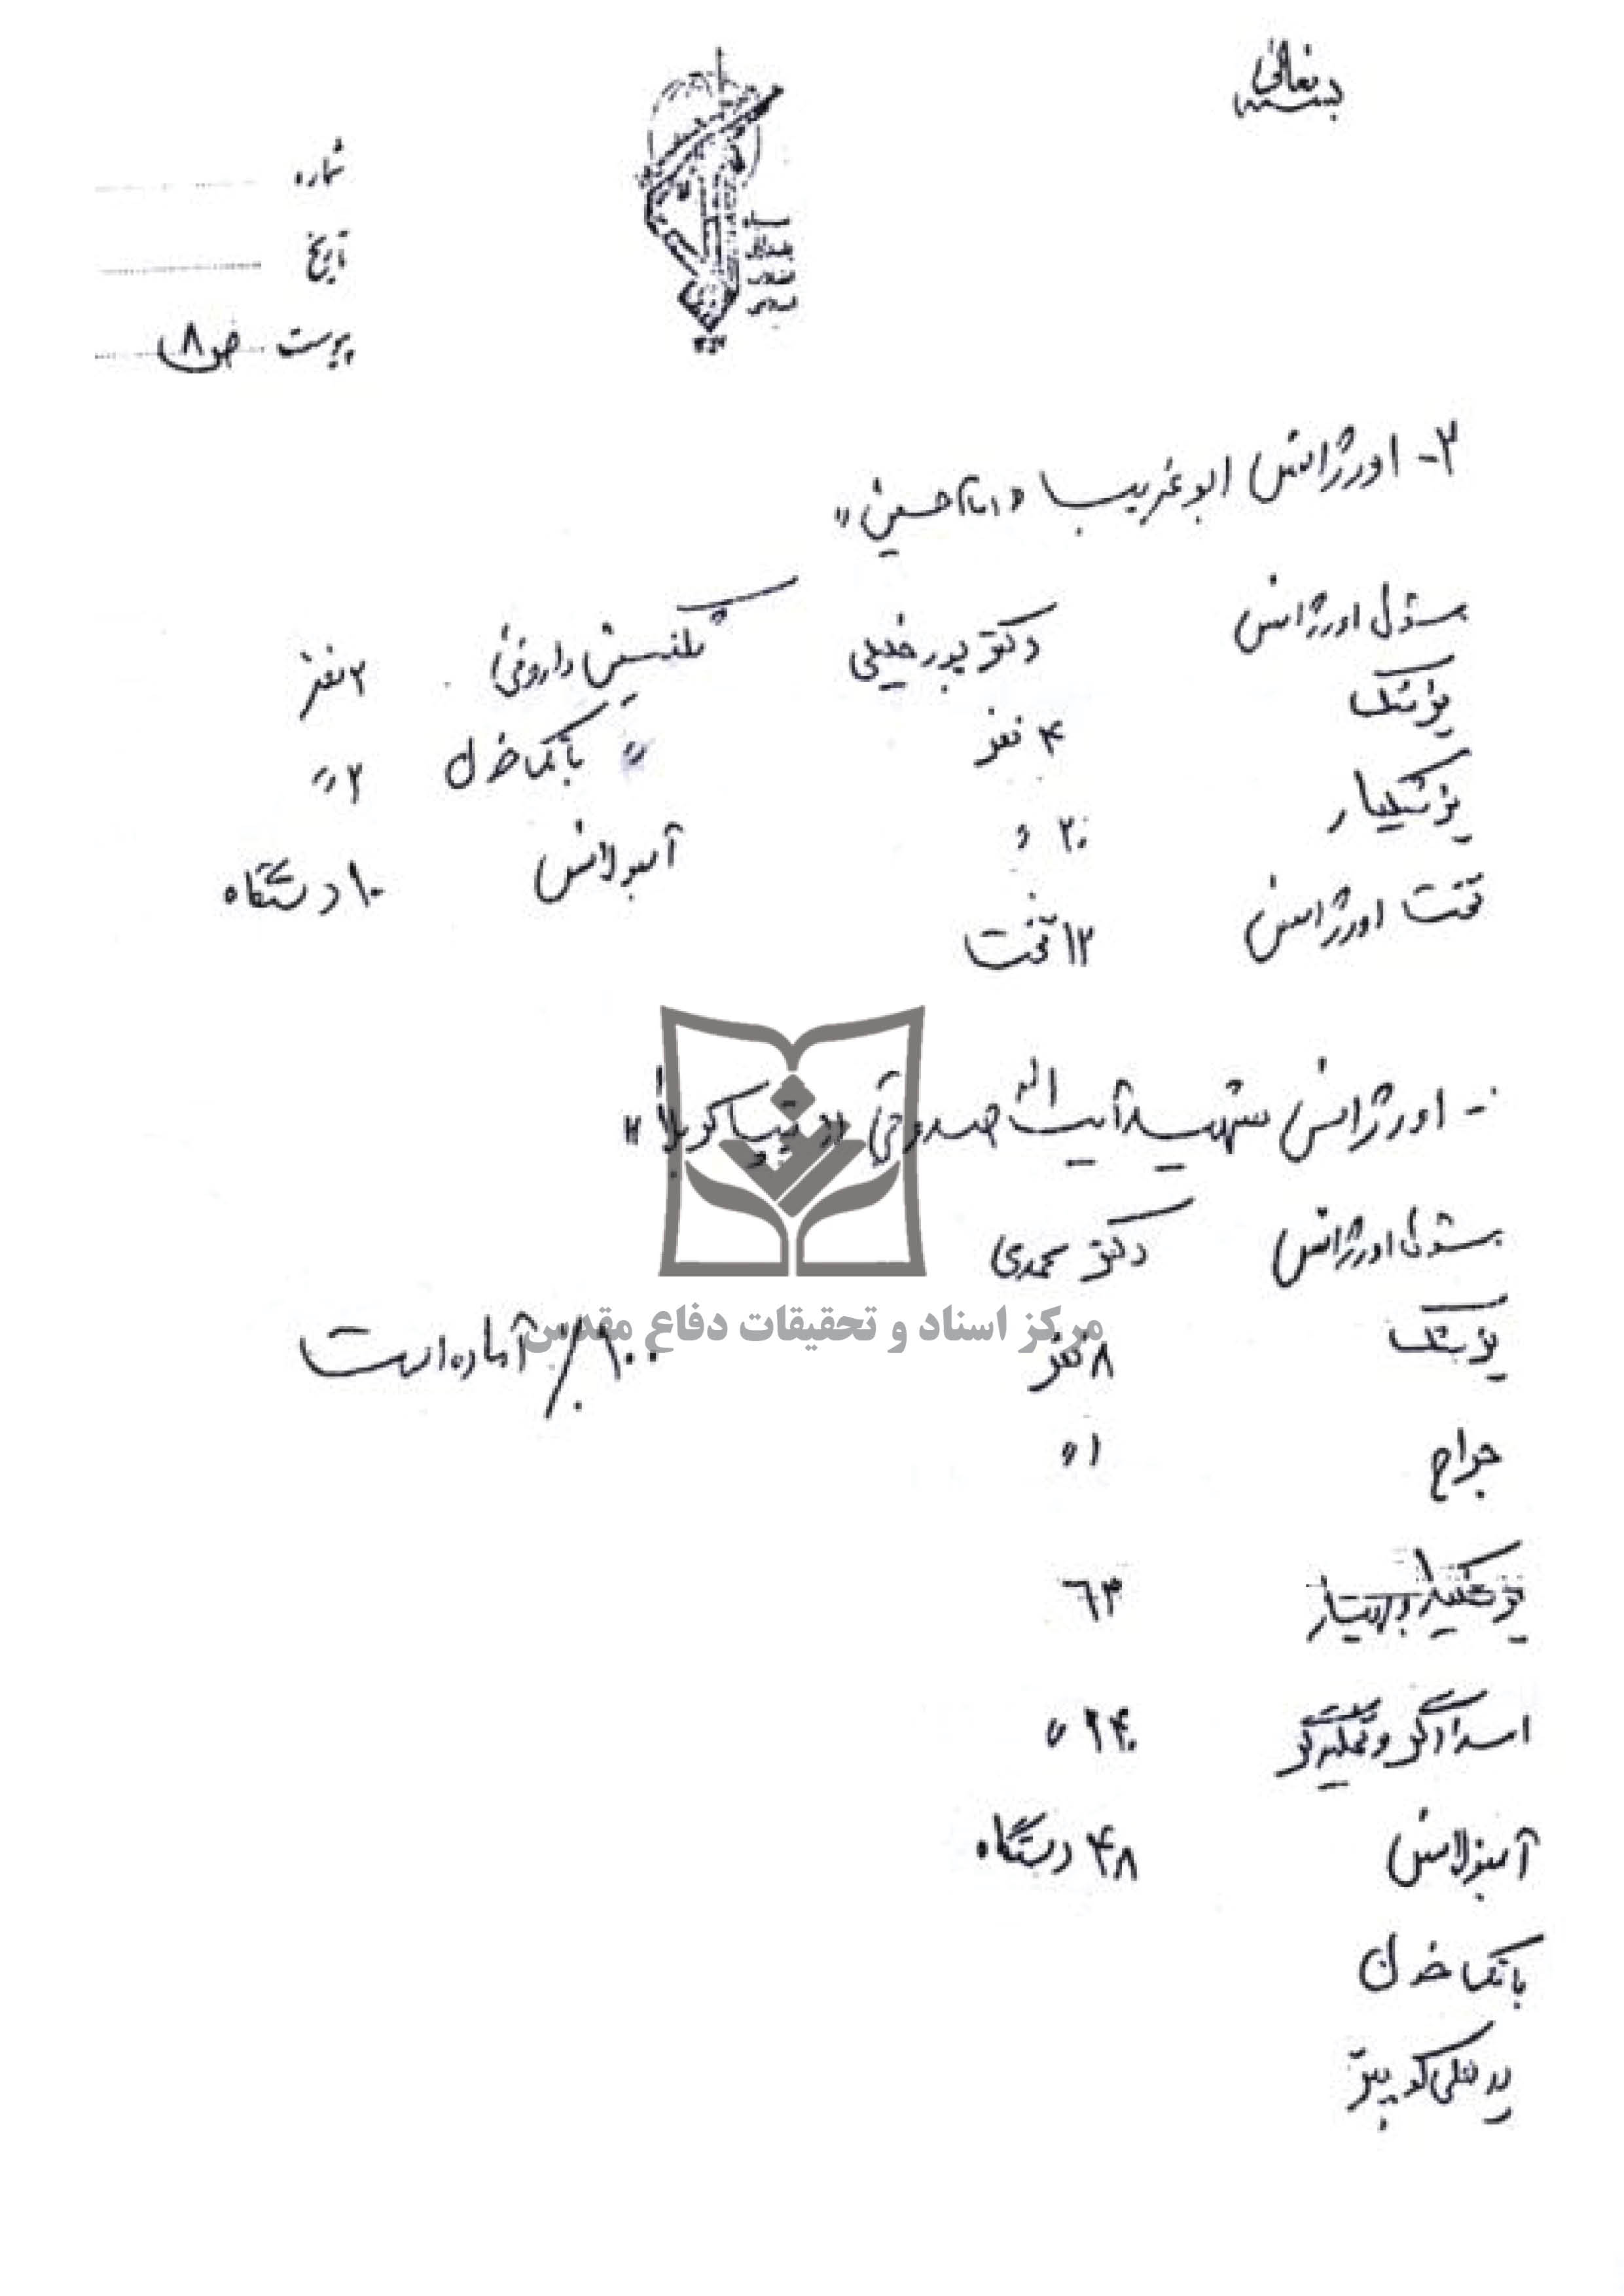 بسمه تعالی
شماره
تاریخ
پیوست ص ۸
سپاه پاسداران انقلاب اسلامی
۳- اورژانس ابوغریب «امام حسین»
مسئول اورژانس دکتر پورخلیلی تکنسین داروئی ۲ نفر
پزشک ۴ نفر " بانک خون ۲ "
پزشکیار ۲۰ " آمبولانس ۱۰ دستگاه
تخت اورژانس ۱۲ تخت
- اورژانس شهید آیت الله صدوقی «تیپ کربلا»
مسئول اورژانس دکتر محمدی
پزشک ۸ نفر ۱۰۰٪ آماده است
جراح ۱ "
پزشکیار بهیار ۶۴
امدادگر و تخلیه‌گر ۱۴۰ "
آمبولانس ۴۸ دستگاه
بانک خون
پد هلی‌کوپتر
مرکز اسناد و تحقیقات دفاع مقدس